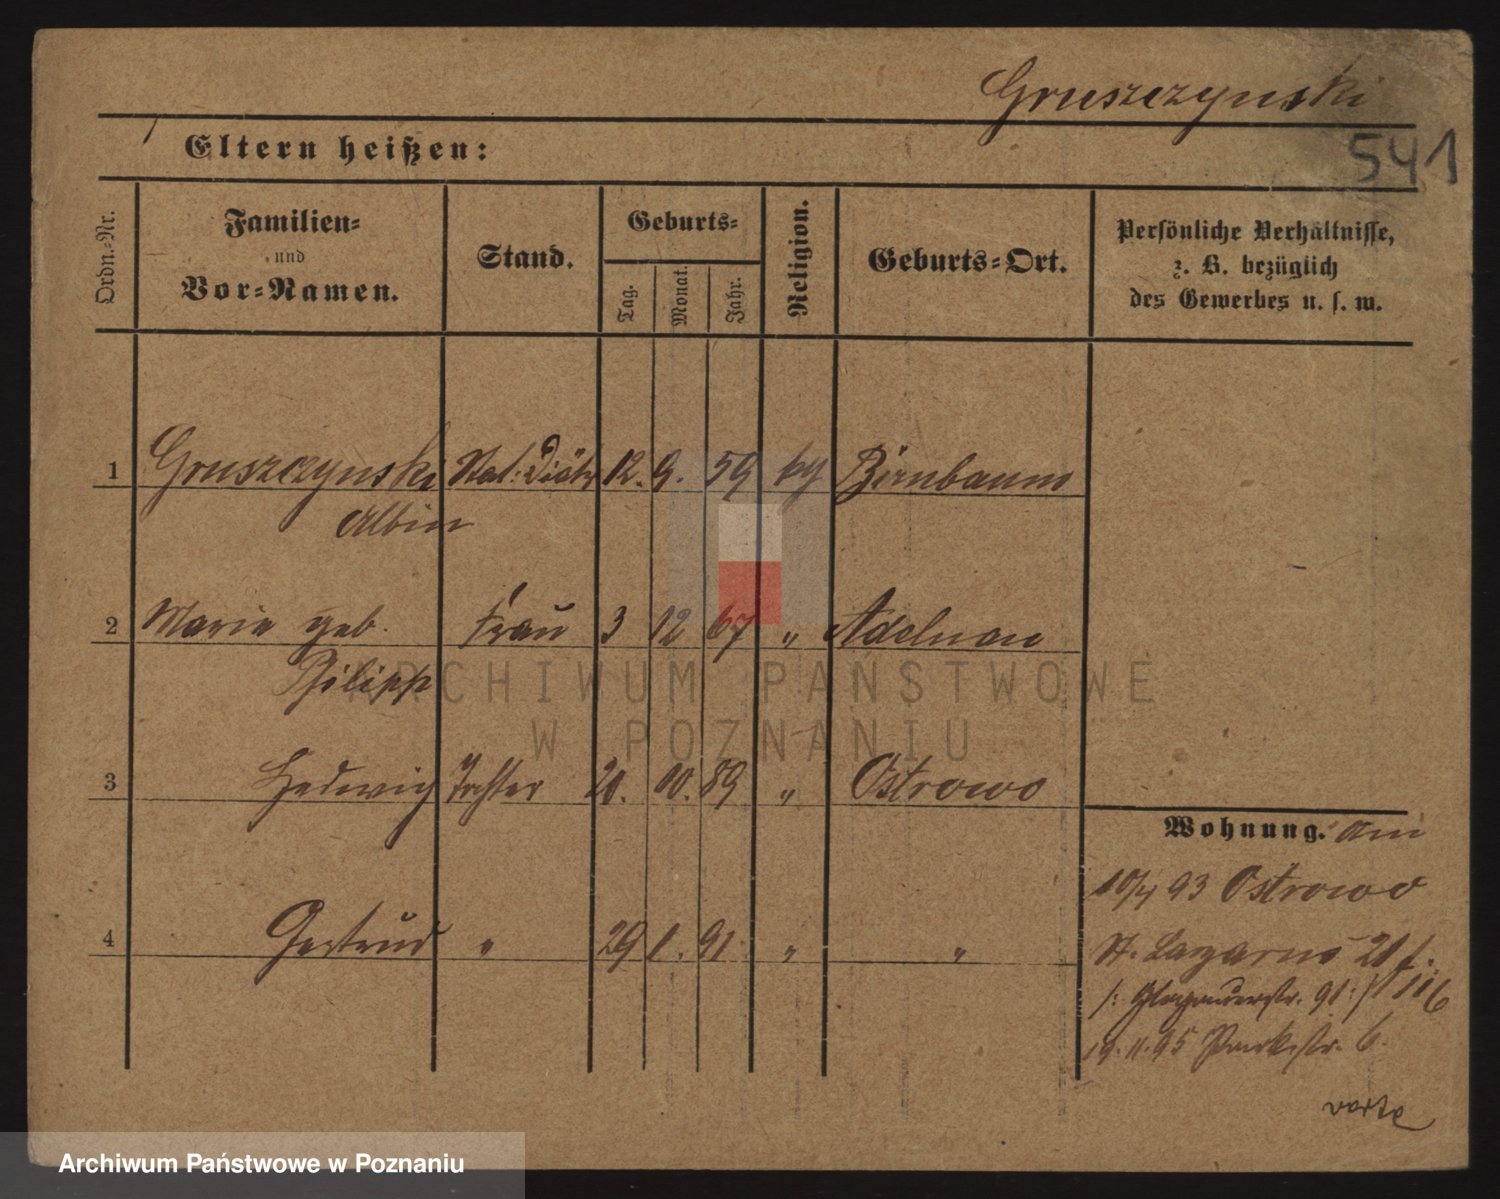 Gruszczynski
541
Eltern heißen:
Ordn.-Nr.
Familien-
und
Vor-Namen.
Stand.
Geburts-
Tag.
Monat.
Jahr.
Religion.
Geburts-Ort.
Persönliche Verhältnisse,
z. B. bezüglich
des Gewerbes u. s. w.
1 Gruszczynski 12. 9. 59 Birnbaum
Albin
2 Marie geb. Frau 3 12 67 " Adelnau
Philipp
ARCHIWUM PAŃSTWOWE
W POZNANIU
3 Hedwig Tochter 20. 10. 89 " Ostrowo
Wohnung. am
10/4 93 Ostrowo
4 Gertrud " 29 1. 91 " "
St. Lazarus
/: Glogauerstr. 91 :/
19. 11. 95 Parkstr. 6.
Archiwum Państwowe w Poznaniu